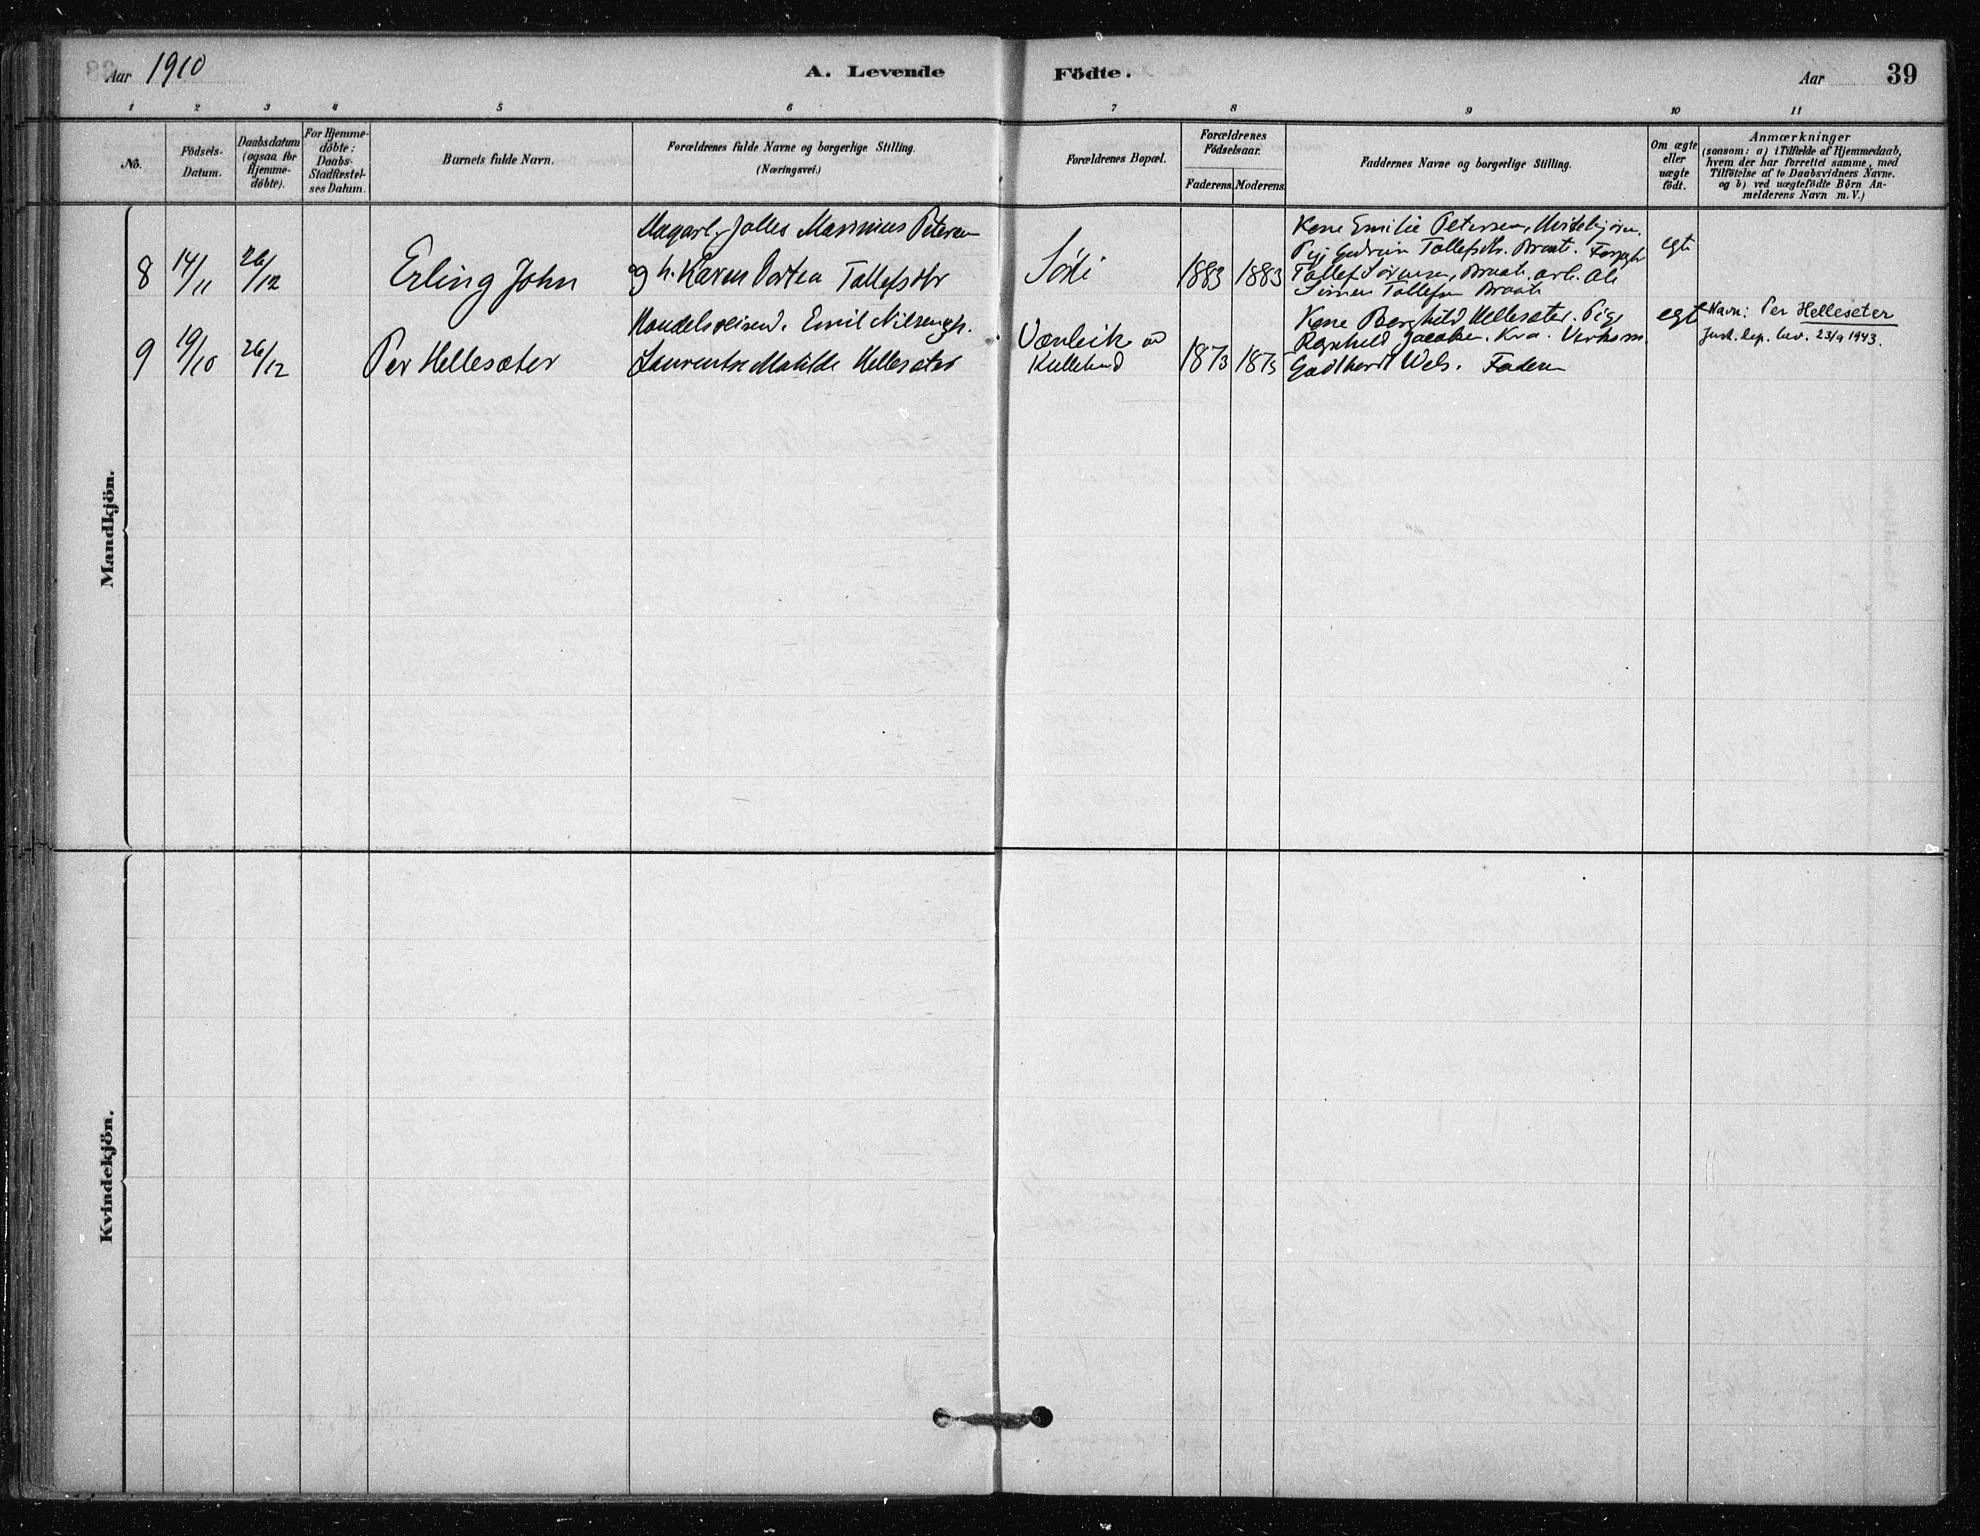 Aar 1910
A. Levende
Födte.
Aar
39
1 2 3 4 5 6 7 8 9 10 11
No.
Födsels-
Datum.
Daabsdatum
(ogsaa for
Hjemme-
döbte).
For Hjemme-
döbte:
Daabs-
Stadfæstel-
ses Datum.
Barnets fulde Navn.
Forældrenes fulde Navne og borgerlige Stilling.
(Næringsvei.)
Forældrenes Bopæl.
Forældrenes
Födselsaar.
Faderens. Moderens.
Faddernes Navne og borgerlige Stilling.
Om ægte
eller
uægte
födt.
Anmærkninger
(saasom: a) i Tilfælde af Hjemmedaab,
hvem der har forrettet samme, med
Tilföielse af to Daabsvidners Navne.
og b) ved uægtefödte Börn An-
melderens Navn m.V.)
Mandkjön.
8
14/11
26/12
Erling John
Jolles Marinius Petersen
og h. Karen Tollefsdtr
1883 1883
Kone Emilie Petersen,
Pig Gudrun Tollefsdtr. Braate.
Tollef Sørensen, Braate. arb. Ole
Simen Tollefsen Braate
egte
9
19/10
26/12
Per Hellesæter
Handelsreisend. Emil Nilsen og h.
Laurentse Matilde Hellesæter
Kullebund
1873 1875
Kone Borghild Hellesæter. Pige
Ragnhild Jacobsen. Kra.
Wels. Faderen
egte
Navn: Per Helleseter
Just. dep. bev. 23/9 1943.
Kvindekjön.